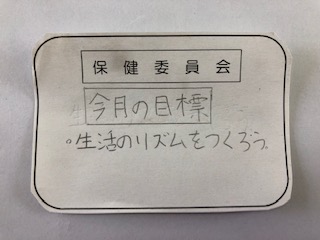 保健委員会
今月の目標
。生活のリズムをつくろう。